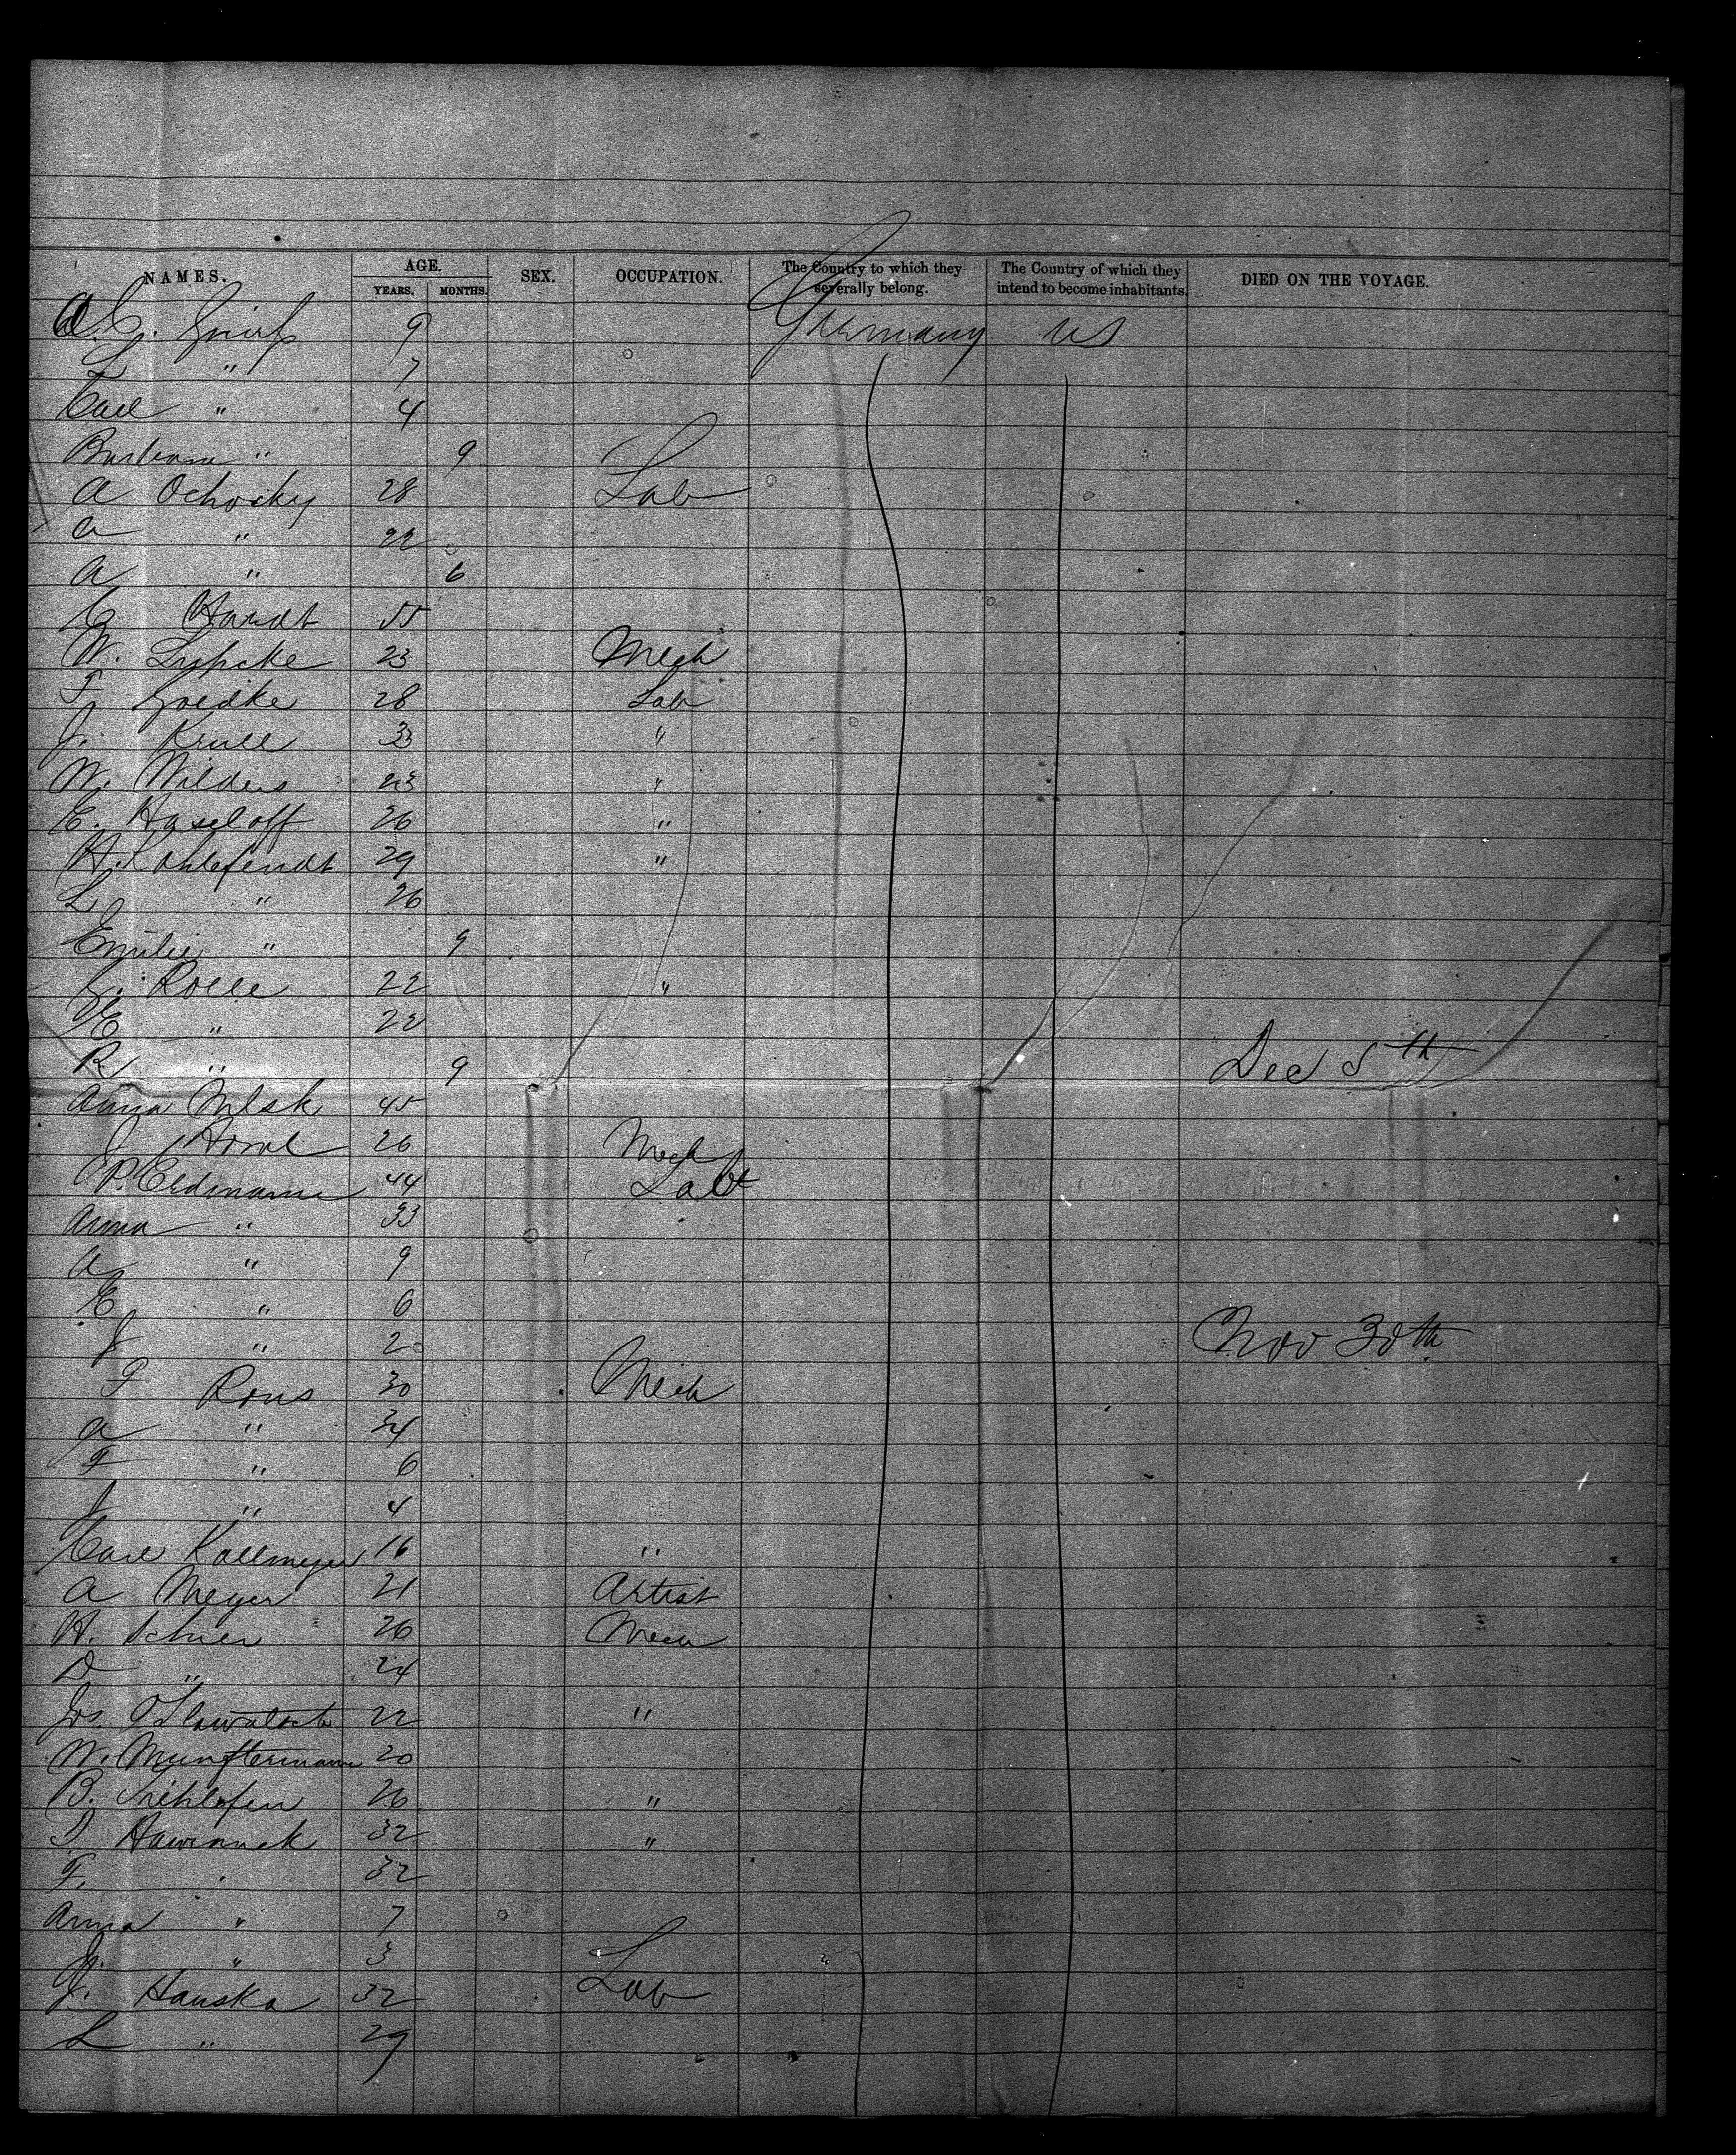 NAMES. AGE. YEARS. MONTHS. SEX. OCCUPATION. The Country to which they severally belong. The Country of which they intend to become inhabitants. DIED ON THE VOYAGE.
9 Germany US
L " 7
Carl " 4
Barbara " 9
A Ochocky 28 Lab
A " 22
A " 6
Hardt 55
W. Lupcke 23 Mech
F Goedke 28 Lab
J. Krull 33 "
W. Wilders 23 "
E. Haseloff 26 "
H. 29 "
L " 26
Emilie " 9
Rolle 22 "
E " 22
R " 9 Dec 5th
Anna 45
J 26 Mech
P. Erdmann 44 Lab
Anna " 33
A " 9
E " 6
J " 2 Nov 30th
F Rous 30 Mech
A " 34
F " 6
J " 4
Carl Kallmeyer 16 "
A Meyer 21 Artist
H. Schier 26 Mech
D " 24
Jos. 22 "
W. Munstermann 20
B. 26 "
Hawranek 32 "
F. " 32
Anna " 7
J. " 3
J. Hanska 32 Lab
L " 29